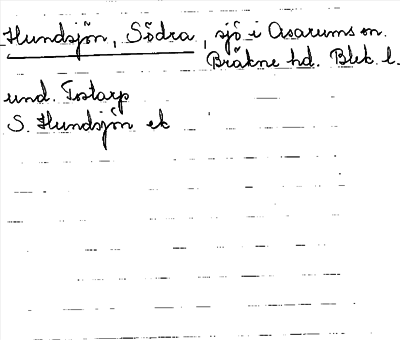 Hundsjön, Södra, sjö i Asarums sn.
Bräkne hd. Blek. l.
und. Tostarp
S. Hundsjön ek